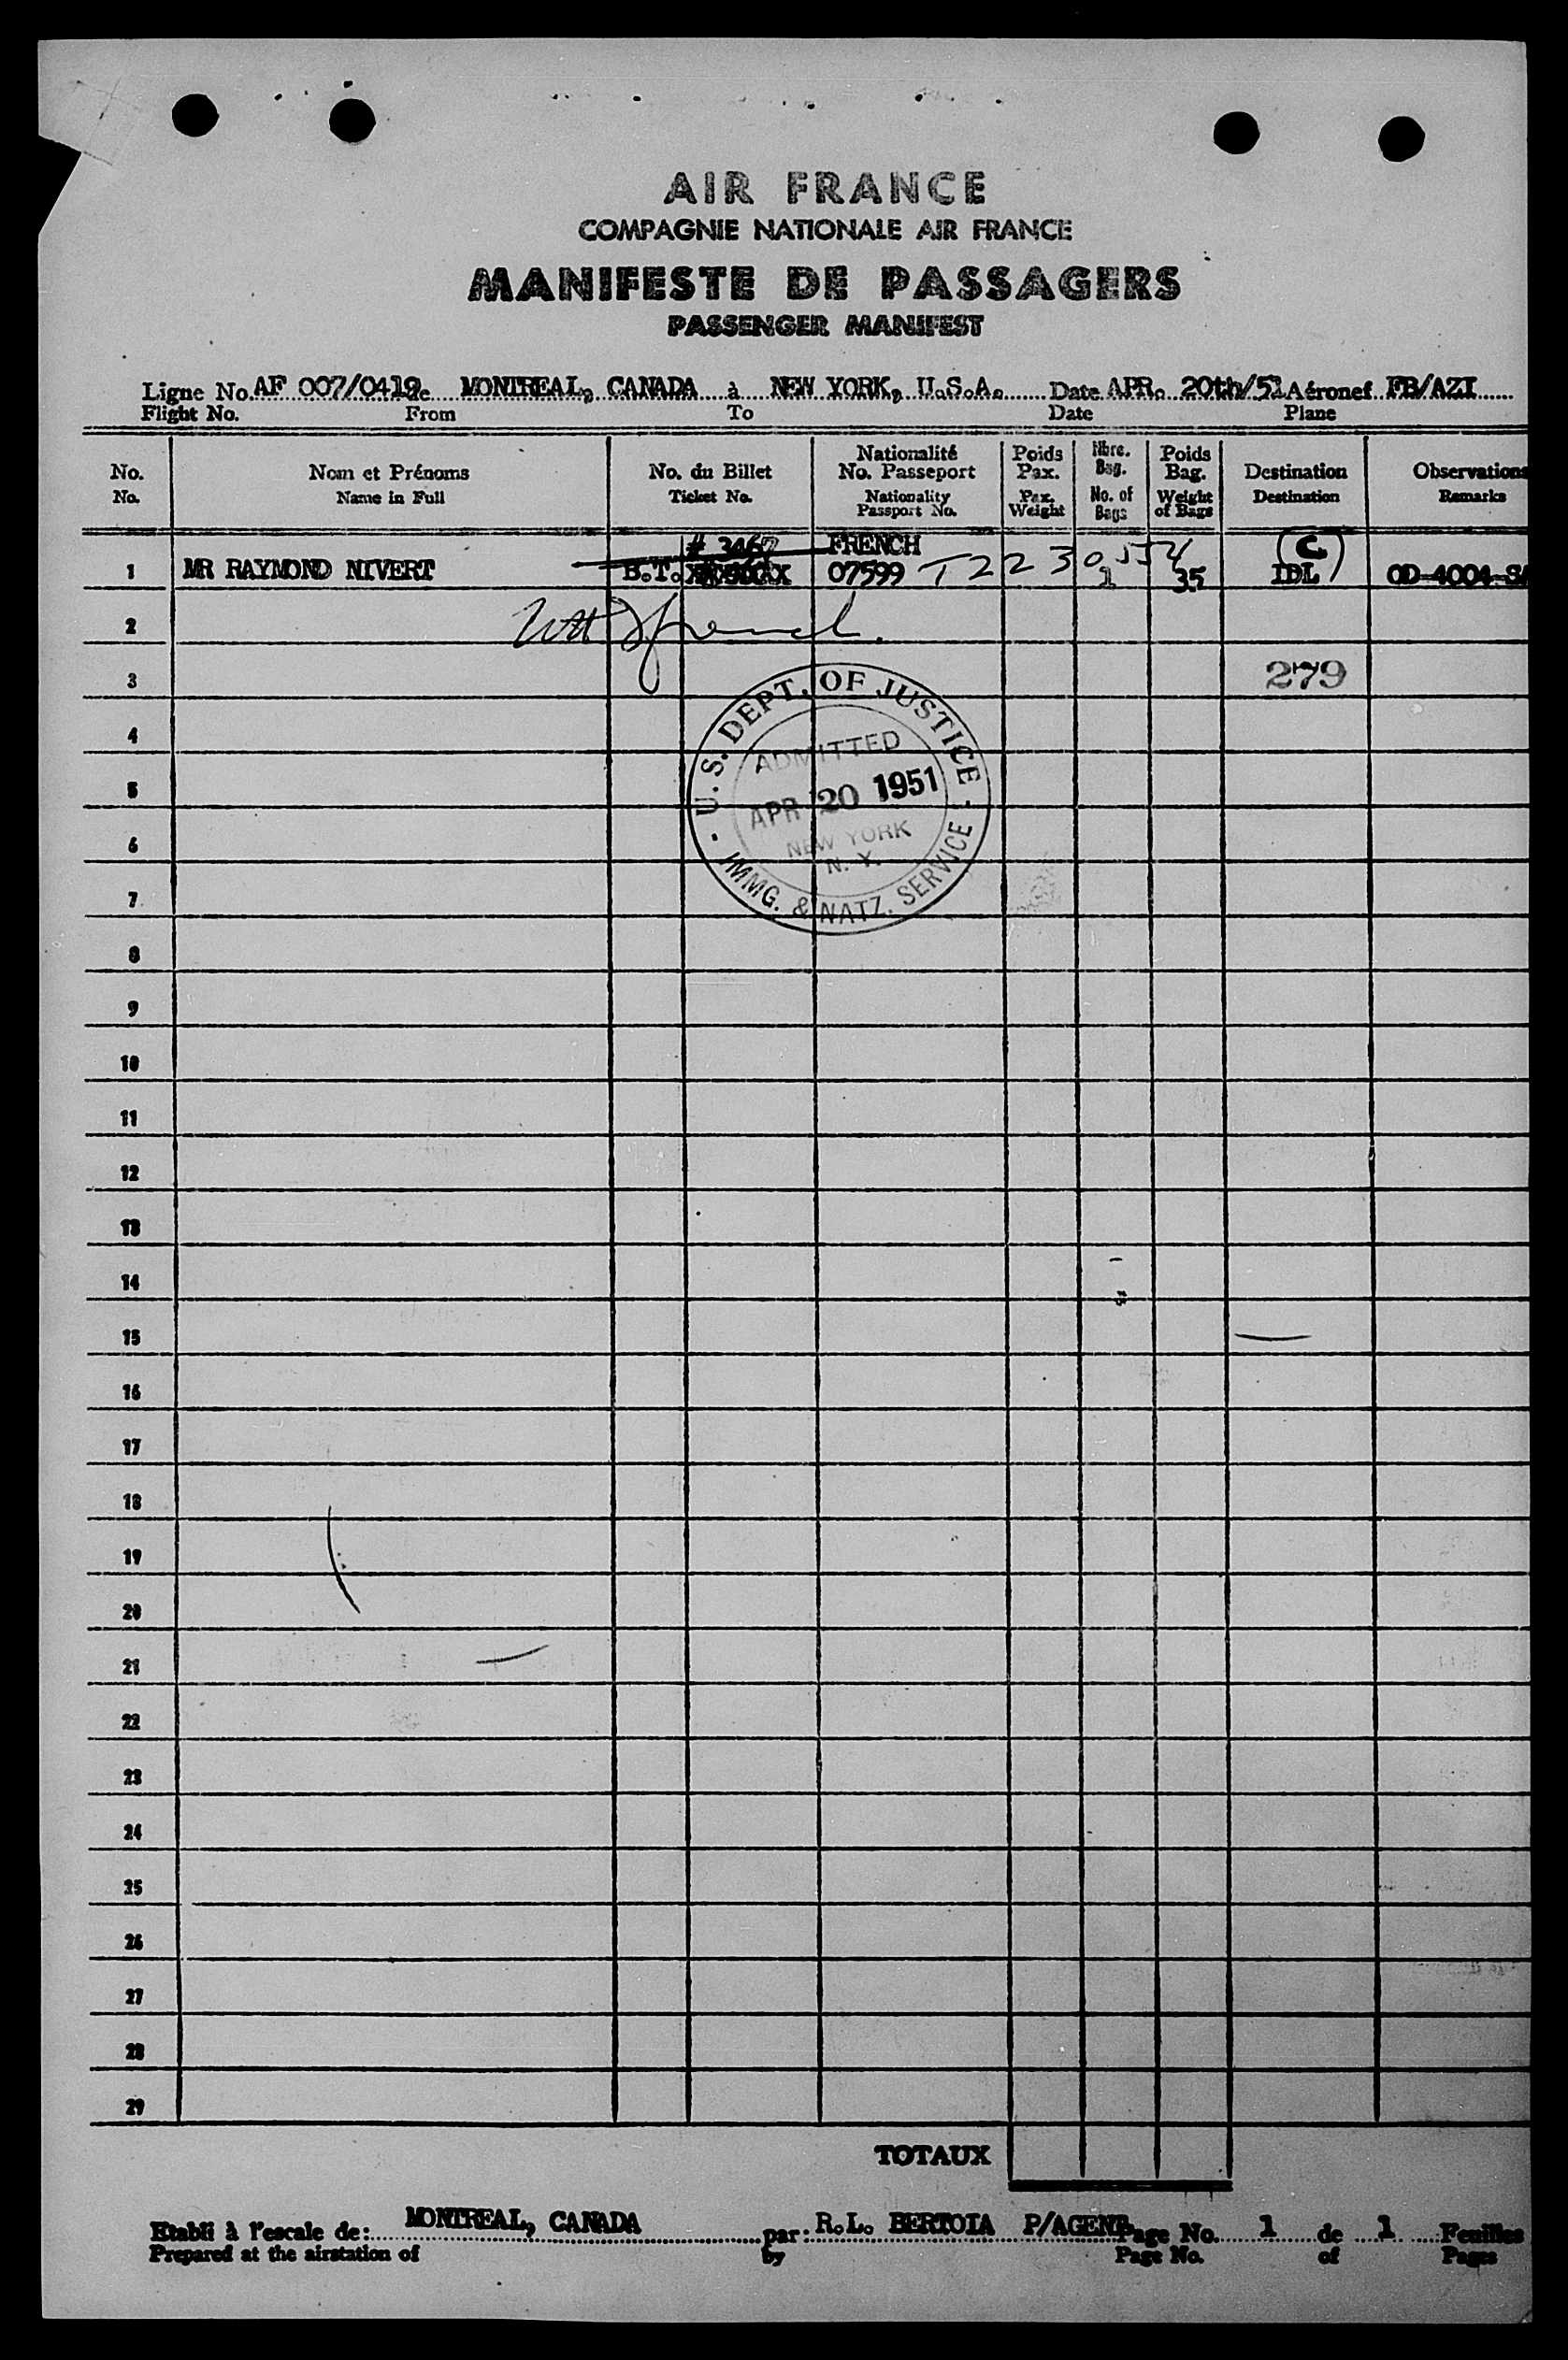 AIR FRANCE
COMPAGNIE NATIONALE AIR FRANCE
MANIFESTE DE PASSAGERS
PASSENGER MANIFEST
Ligne No. AF 007/0419 de MONTREAL, CANADA à NEW YORK, U.S.A. Date APR. 20th/51 Aéronef FB/AZI
Flight No. From To Date Plane
No. Nom et Prénoms No. du Billet Nationalité No. Passeport Poids Pax. Nbre. Bag. Poids Bag. Destination Observations
No. Name in Full Ticket No. Nationality Passport No. Pax. Weight No. of Bags Weight of Bags Destination Remarks
# 3467 FRENCH (C)
1 MR RAYMOND NIVERT B.T. 07599 T2230554 1 35 IDL OD-4004-SA
2
3 279
4
5
6
7
8
9
10
11
12
13
14
15
16
17
18
19
20
21
22
23
24
25
26
27
28
29
U.S. DEPT. OF JUSTICE
ADMITTED
APR 20 1951
NEW YORK
N. Y.
IMMG. & NATZ. SERVICE
TOTAUX
Etabli à l'escale de: MONTREAL, CANADA par: R.L. BERTOIA P/AGENT Page No. 1 de 1 Feuilles
Prepared at the airstation of by Page No. of Pages